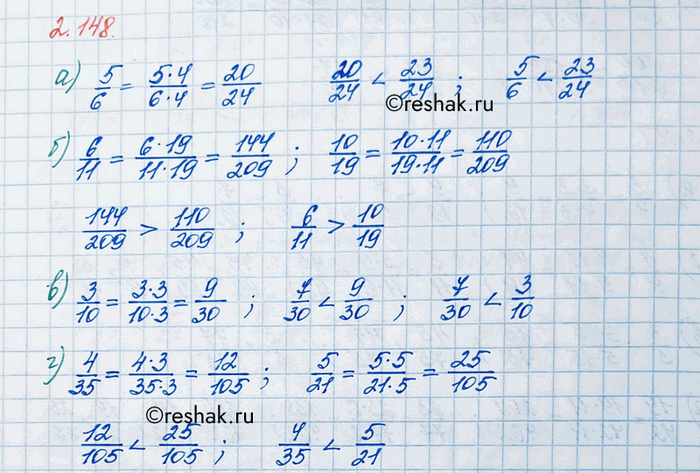 2.148.
а) 5/6 = 5·4/6·4 = 20/24 20/24 < 23/24 ; 5/6 < 23/24
©reshak.ru
б) 6/11 = 6·19/11·19 = 144/209 ; 10/19 = 10·11/19·11 = 110/209
144/209 > 110/209 ; 6/11 > 10/19
в) 3/10 = 3·3/10·3 = 9/30 ; 7/30 < 9/30 ; 7/30 < 3/10
г) 4/35 = 4·3/35·3 = 12/105 ; 5/21 = 5·5/21·5 = 25/105
©reshak.ru
12/105 < 25/105 ; 4/35 < 5/21